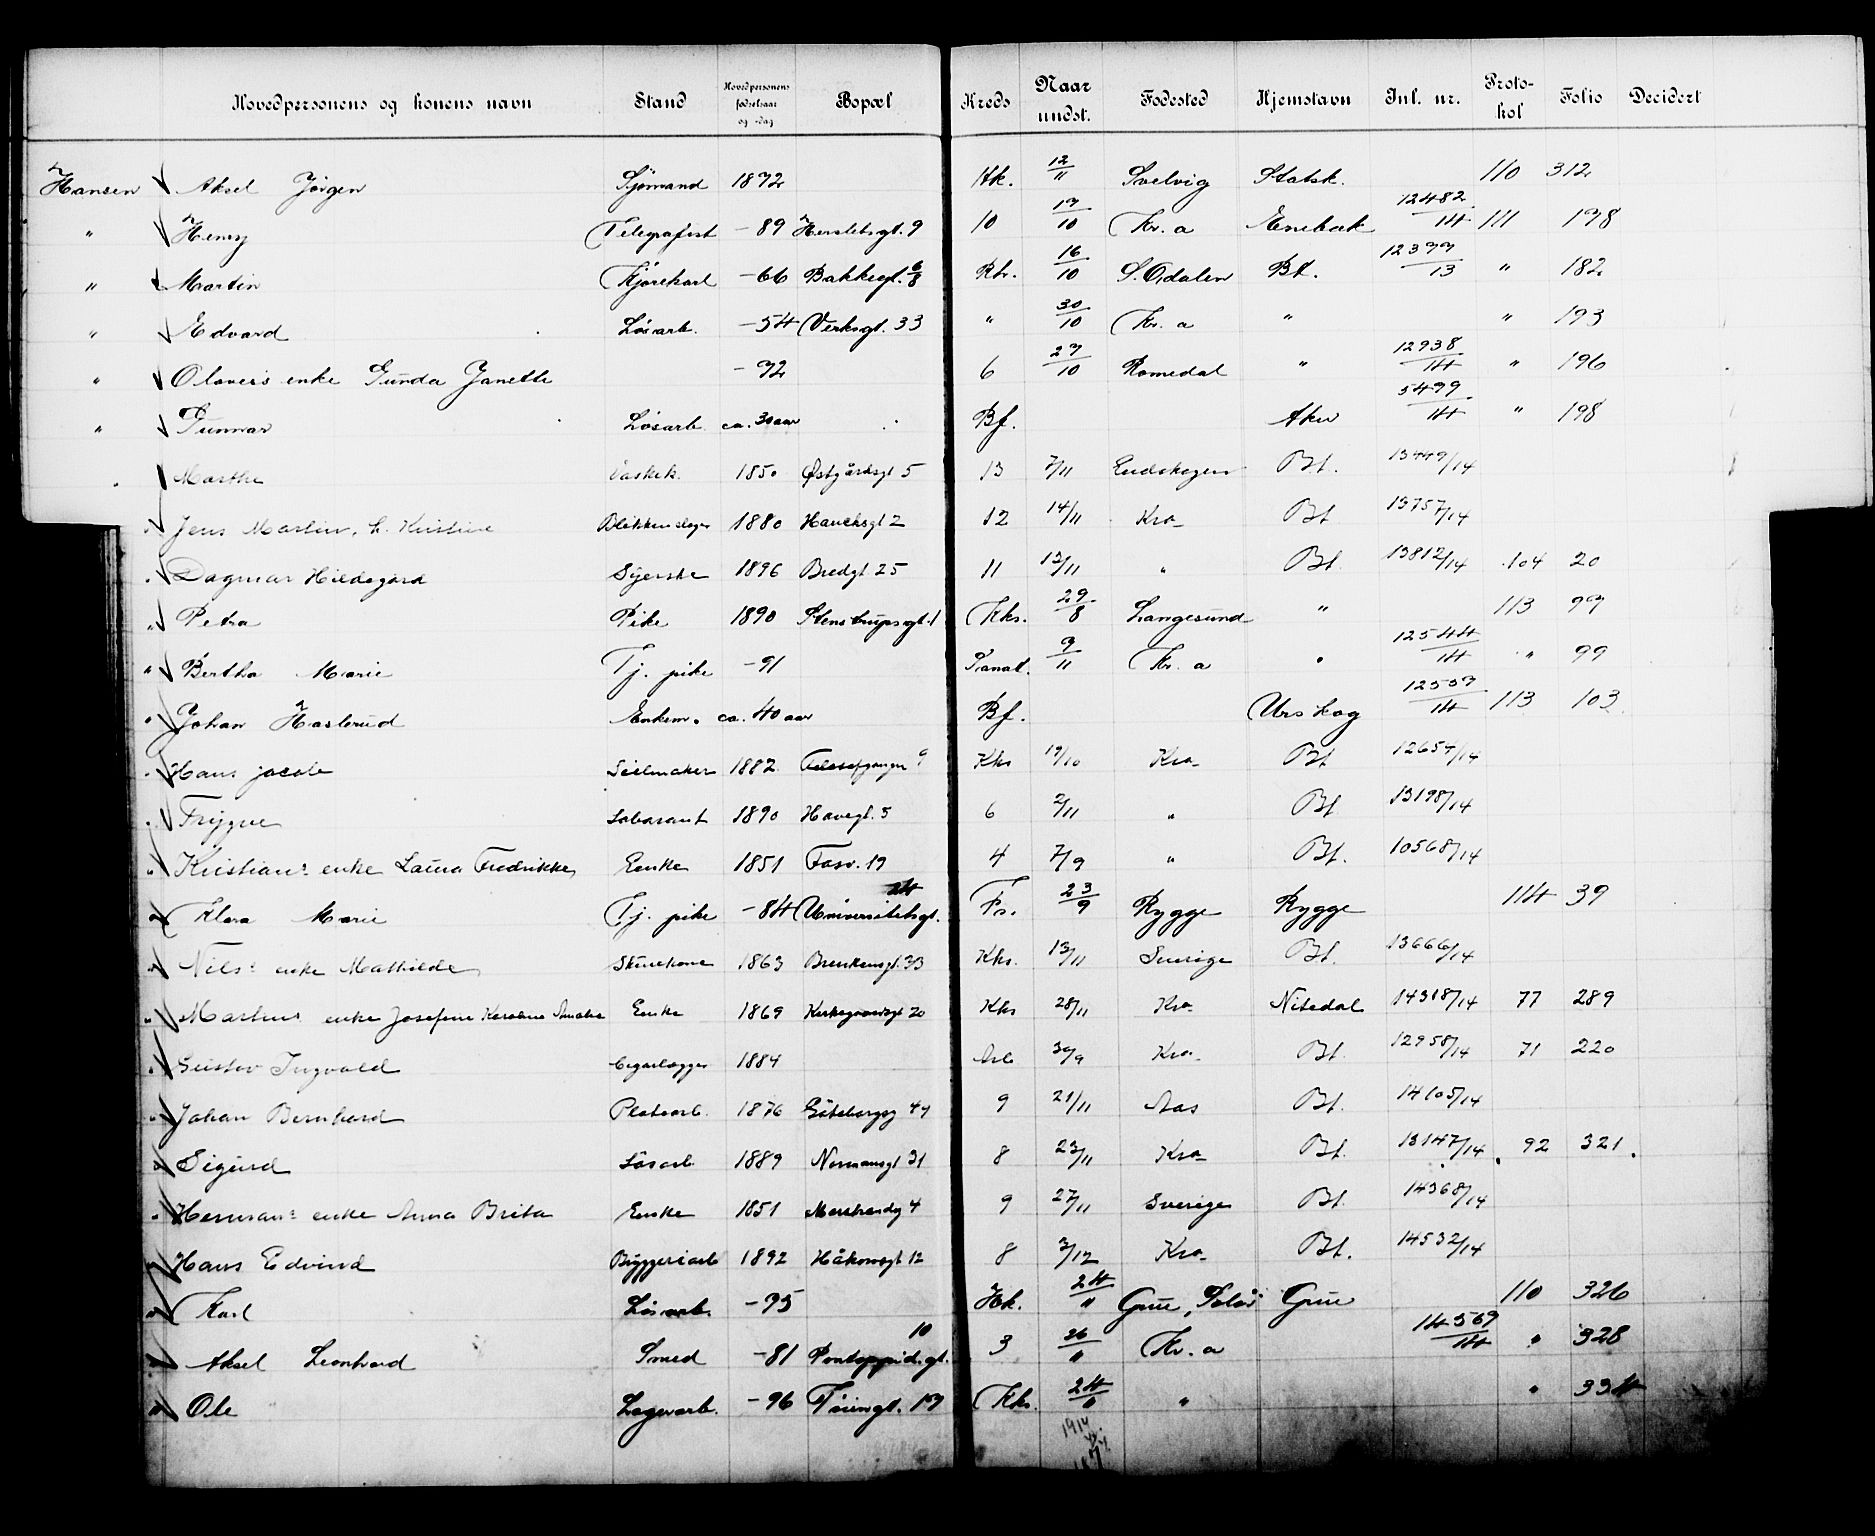 Hovedpersonens og konens navn Stand Hovedpersonens fødselsaar og -dag Bopæl Kreds Naar undst. Fødested Hjemstavn Inl. nr. Protokol Folio Decidert
Hansen Aksel Jørgen Sjømand 1872 Hk. 12/11 Svelvig Statsk. 110 312
" Henry Telegrafist -89 Herslebsgt. 9 10 19/10 Kr.a Enebak 12482/14 111 198
" Martin Kjørekarl -66 Bakkegt. 6/8 16/10 S. Odalen Bt. 13 " 182
" Edvard Løsarb. -54 Verksgt. 33 " 30/10 Kr.a " " 193
" Olaves enke Gunda Janette -72 6 27/10 Romedal " 12938/14 " 196
" Gunnar Løsarb. ca. 30 aar Bf. Aker 5499/14 " 198
" Marthe Vaskek. 1850 Østgårdsgt 5 13 7/11 Eidskogen Bt. 13449/14
" Jens Martin, h. Kristine Blikkenslager 1880 Hauchsgt 2 12 14/11 Kra Bt 13757/14
" Dagmar Hildegard Syerske 1896 Bredgt 25 11 13/11 " Bt. 13812/14 104 20
" Petra Pike 1890 Stenstrupsgt. 1 Kks. 29/8 Langesund " 113 99
" Bertha Marie Tj. pike -91 Sanat. 9/11 Kr.a " 12544/14 " 99
" Johan Haslerud Enkem. ca. 40 aar Bf. Urskog 12559/14 113 103
" Hans Jacob Seilmaker 1882 Filosofgangen 9 Kks 19/10 Kra Bt 12654/14
" Trygve Laborant 1890 Havegt. 5 6 2/11 " Bt 13198/14
" Kristian's enke Laura Fredrikke Enke 1851 Fosv. 19 4 7/9 " Bt. 10568/14
" Klara Marie Tj. pike -84 Universitetsgt. 24 Fs. 23/9 Rygge Rygge 114 39
" Nils' enke Mathilde Skurekone 1863 Brenneriegt. 33 Kks. 13/11 Sverige Bt. 13666/14
" Martins enke Josefine Karoline Amalie Enke 1869 Kirkegaardsgt 20 Kks 28/11 Kra Nitedal 14318/14 77 289
" Gustav Ingvald Cigarlægger 1884 30/9 Kra Bt. 12958/14 71 220
" Johan Bernhard Platearb. 1876 Gøteborgg 47 9 21/11 Aas Bt. 14105/14
" Sigurd Løsarb. 1889 Normansgt 31 8 23/11 Kra Bt. 13147/14 92 321
" Herman's enke Anna Brita Enke 1851 Marstrandg 4 9 27/11 Sverige Bt. 14368/14
" Hans Edvind Bryggeriarb 1892 Håkonsgt 12 8 3/12 Kra Bt. 14532/14
" Karl Løsarb. -95 Hk. 24/11 Grue, Solør Grue 110 326
" Aksel Leonhard Smed -81 Pontoppid.gt. 10 3 26/11 Kr.a 14569/14 " 328
" Ole Lagerarb. -96 Tøiengt. 19 Kks. 24/11 " " 334
1914